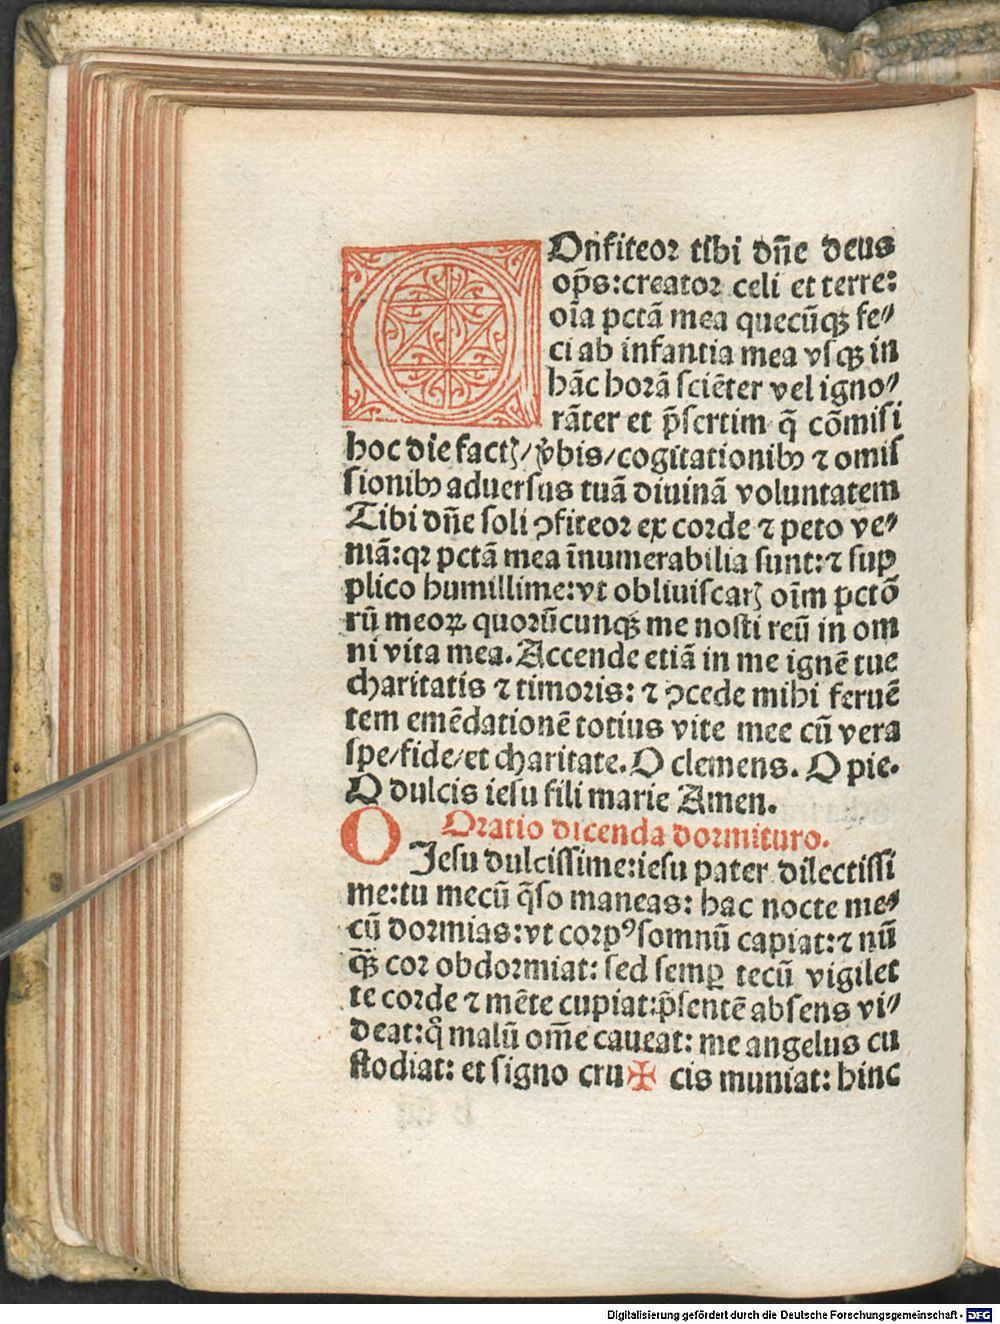 COnfiteor tibi dn̄e deus
op̄s:creator celi et terre:
oīa pctā mea quecūqꝫ fe⸗
ci ab infantia mea vſqꝫ in
hāc horā ſciēter vel igno⸗
rāter et p̄ſertim q̄ cōmiſi
hoc die factꝭ/ v̄bis/cogitationibꝰ ⁊ omiſ
ſionibꝰ aduerſus tuā diuinā voluntatem
Tibi dn̄e ſoli ꝯfiteor ex corde ⁊ peto ve⸗
niā:qꝛ pctā mea īnumerabilia ſunt:⁊ ſup
plico humillime:vt obliuiſcarꝭ oīm pctō
rū meoꝝ quorūcunqꝫ me noſti reū in om
ni vita mea. Accende etiā in me ignē tue
charitatis ⁊ timoris: ⁊ ꝯcede mihi feruē
tem emēdationē totius vite mee cū vera
ſpe/fide/et charitate. O clemens. O pie.
O dulcis ieſu fili marie Amen.
Oratio dicenda dormituro.
O Jeſu dulciſſime:ieſu pater dilectiſſi
me:tu mecū q̄ſo maneas: hac nocte me⸗
cū dormias:vt corpꝰ ſomnū capiat:⁊ nū
qꝫ̄ cor obdormiat: ſed ſemꝑ tecū vigilet
te corde ⁊ mēte cupiat:p̄ſentē abſens vi⸗
deat:q̊ malū om̄e caueat: me angelus cu
ſtodiat: et ſigno cru✠ cis muniat: hinc
Digitalisierung gefördert durch die Deutsche Forschungsgemeinschaft - DFG